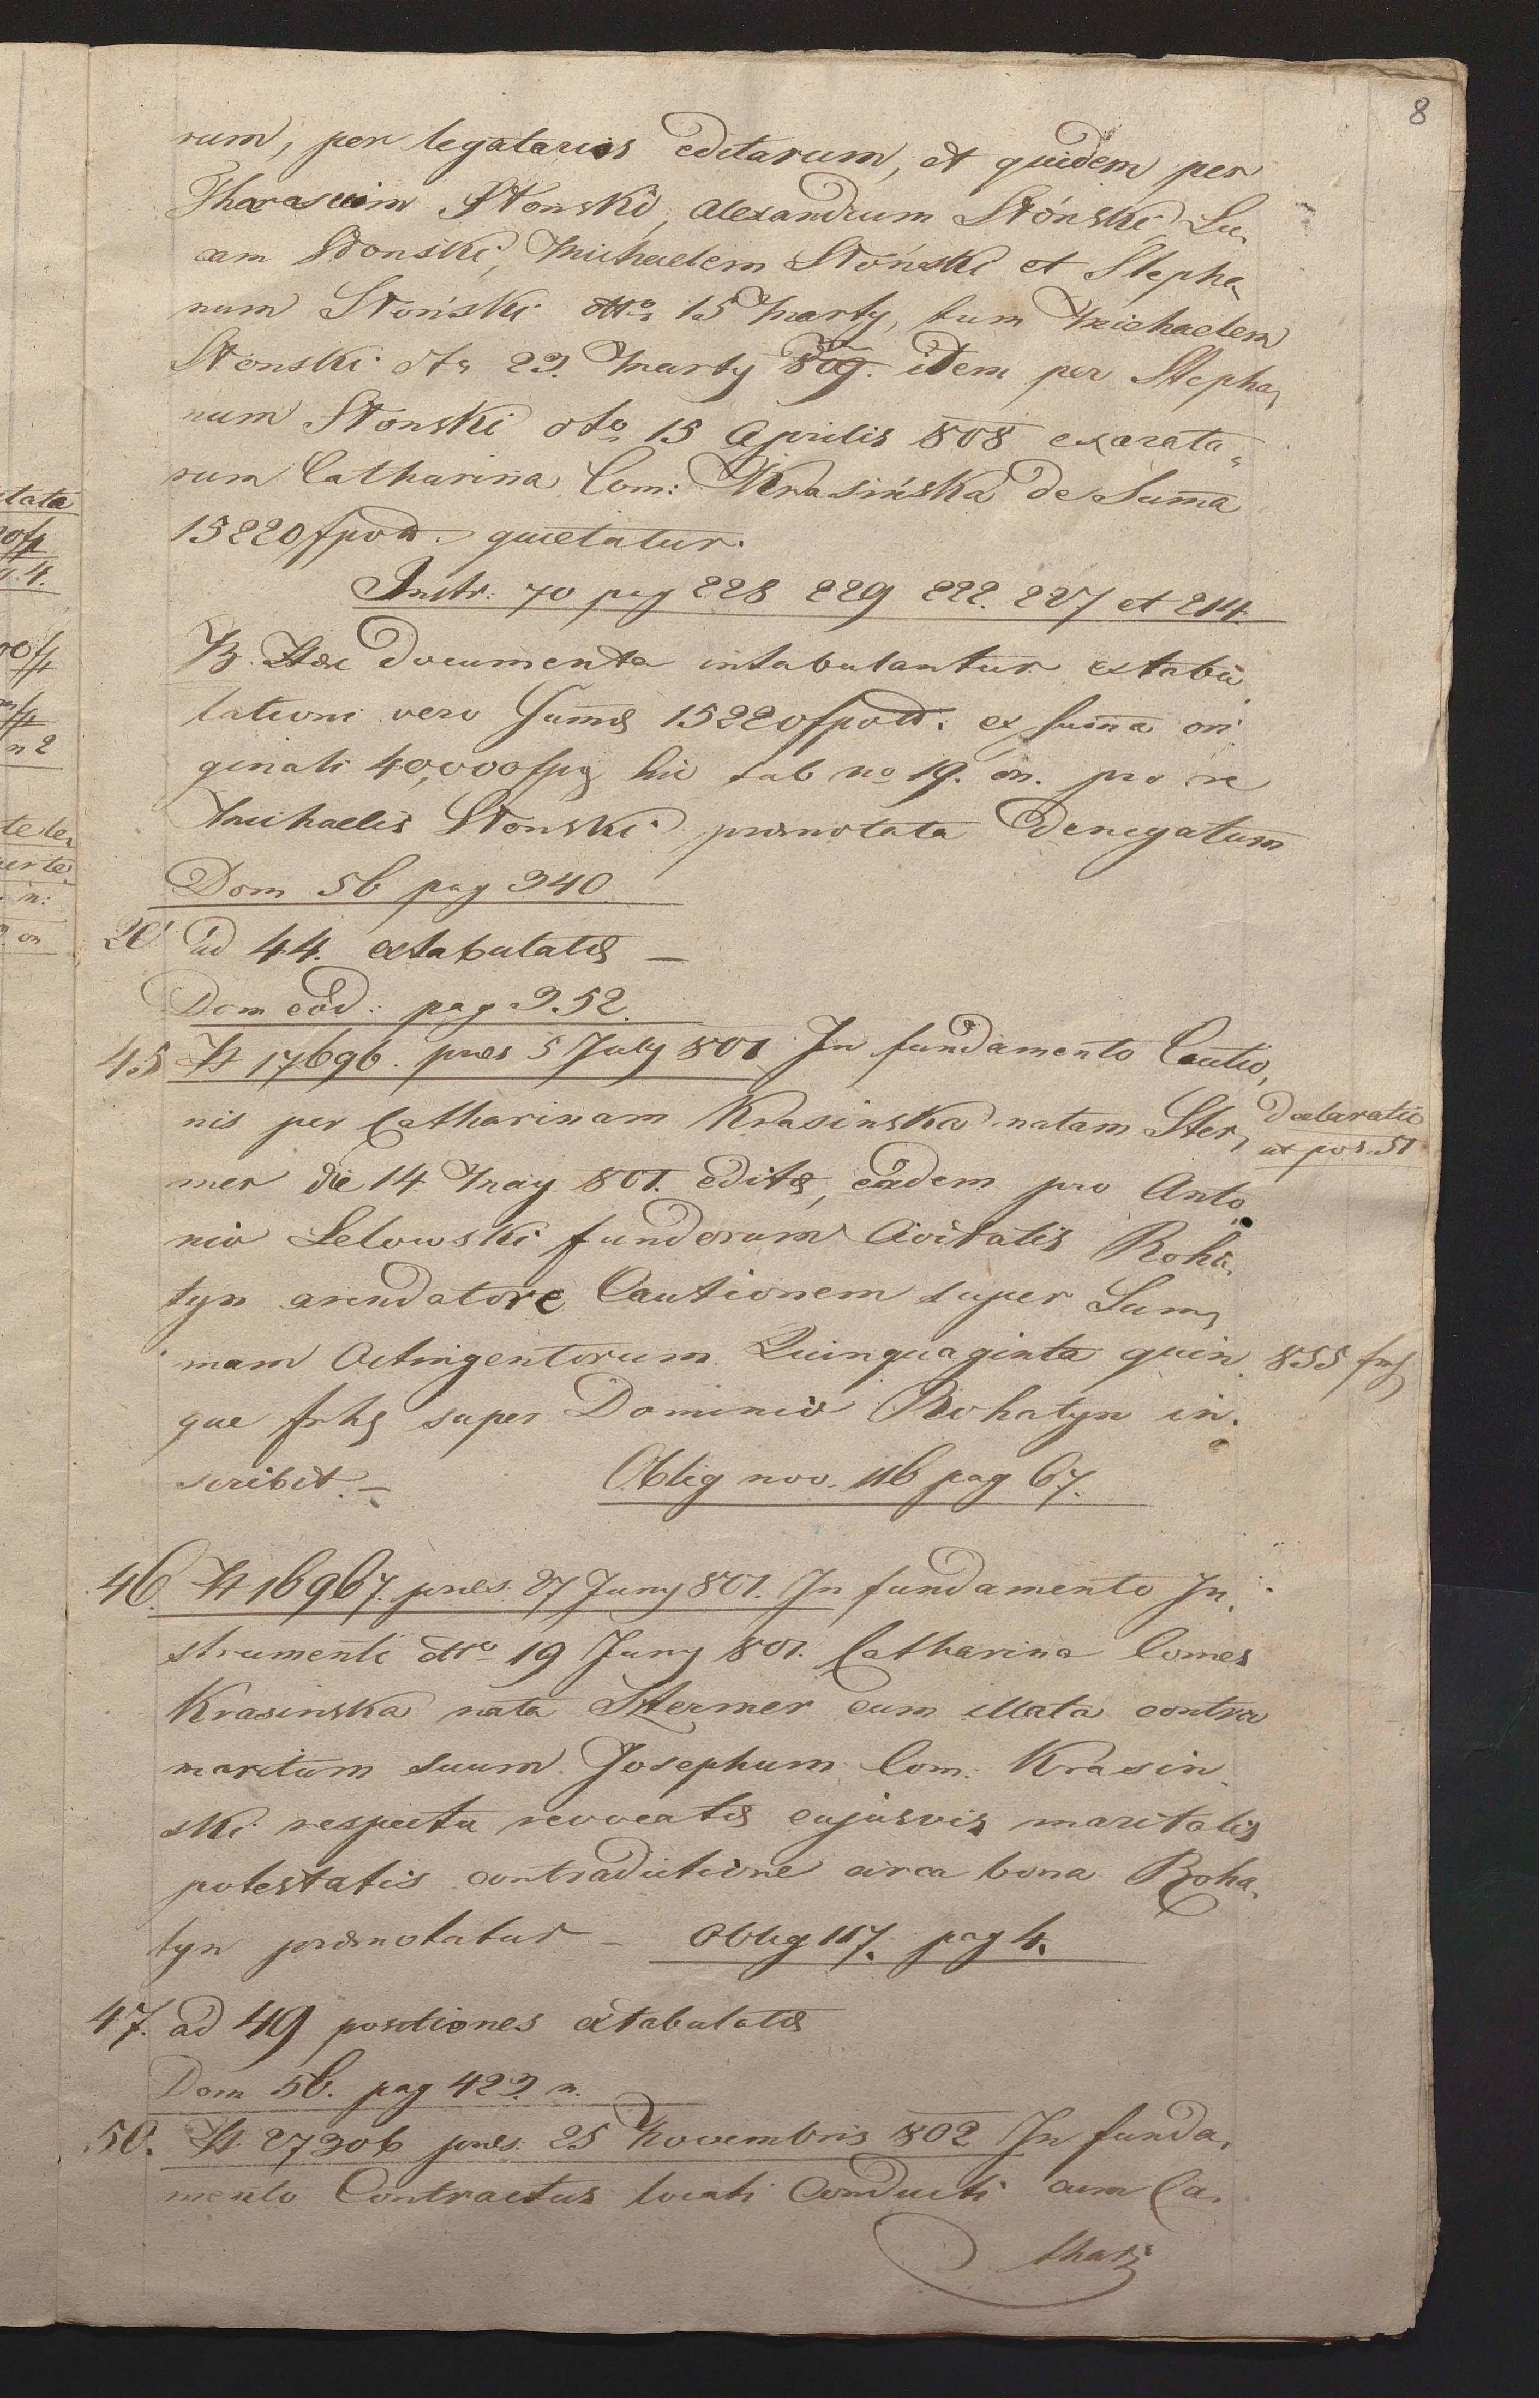 8
rum, per legatarios editarum, et quidem per
Tharasium Słonski, Alexandrum Słónski, Lu„
cam Słonski, Michaelem Słónski et Stepha„
num Słoński dtto 15 Marty, tum Michaelem
Słonski dto 23. Marty 809. idem per Stepha„
num Słonski dto 15 Aprilis 808 exarata„
rum Catharina Com: Krasińska de Suma
15220 fpoll. quietatur.
Instr. 70 pag 228 229 222. 227 et 214.
B. Hæc documenta intabulantur extabu„
lationi vero Sumæ 15220 fpoll. ex suma ori„
ginali 40,000 fpg hic sub no 19. on. pro re
Michaelis Słonski prænotata denegatum
Dom 56 pag 340
20 ad 44. extabulatæ —
Dom eod: pag 352.
45 H 17696. præs 5 July 801 In fundamento Cautio„
nis per Catharinam Krasinska natam Ster„
Declaratio
ut pos. 51
mer die 14 May 801. editæ, eadem pro Anto„
nio Lelowski fundorum Civitatis Roha„
tyn arendatore Cautionem super Sum„
mam Octingentorum Quinquaginta quin„
855 frh
que frhg super Dominio Rohatyn in„
scribit. — Oblig nov. 116 pag 67.
46. H 16967. præs. 27 Juny 801. In fundamento In„
strumenti dtto 19 Juny 801. Catharina Comes
Krasinska nata Stermer cum illata contra
maritum suum Josephum Com. Krasin„
ski respectu revocatæ cujusvis maritalis
potestatis contradictione circa bona Roha„
tyn prænotatur — Oblig 117. pag 4.
47. ad 49 positiones extabulatæ
Dom 56. pag 423 n.
50. H 27306 præs. 25 Novembris 802 In funda„
mento Contractus locati Conducti cum Ca„
thari